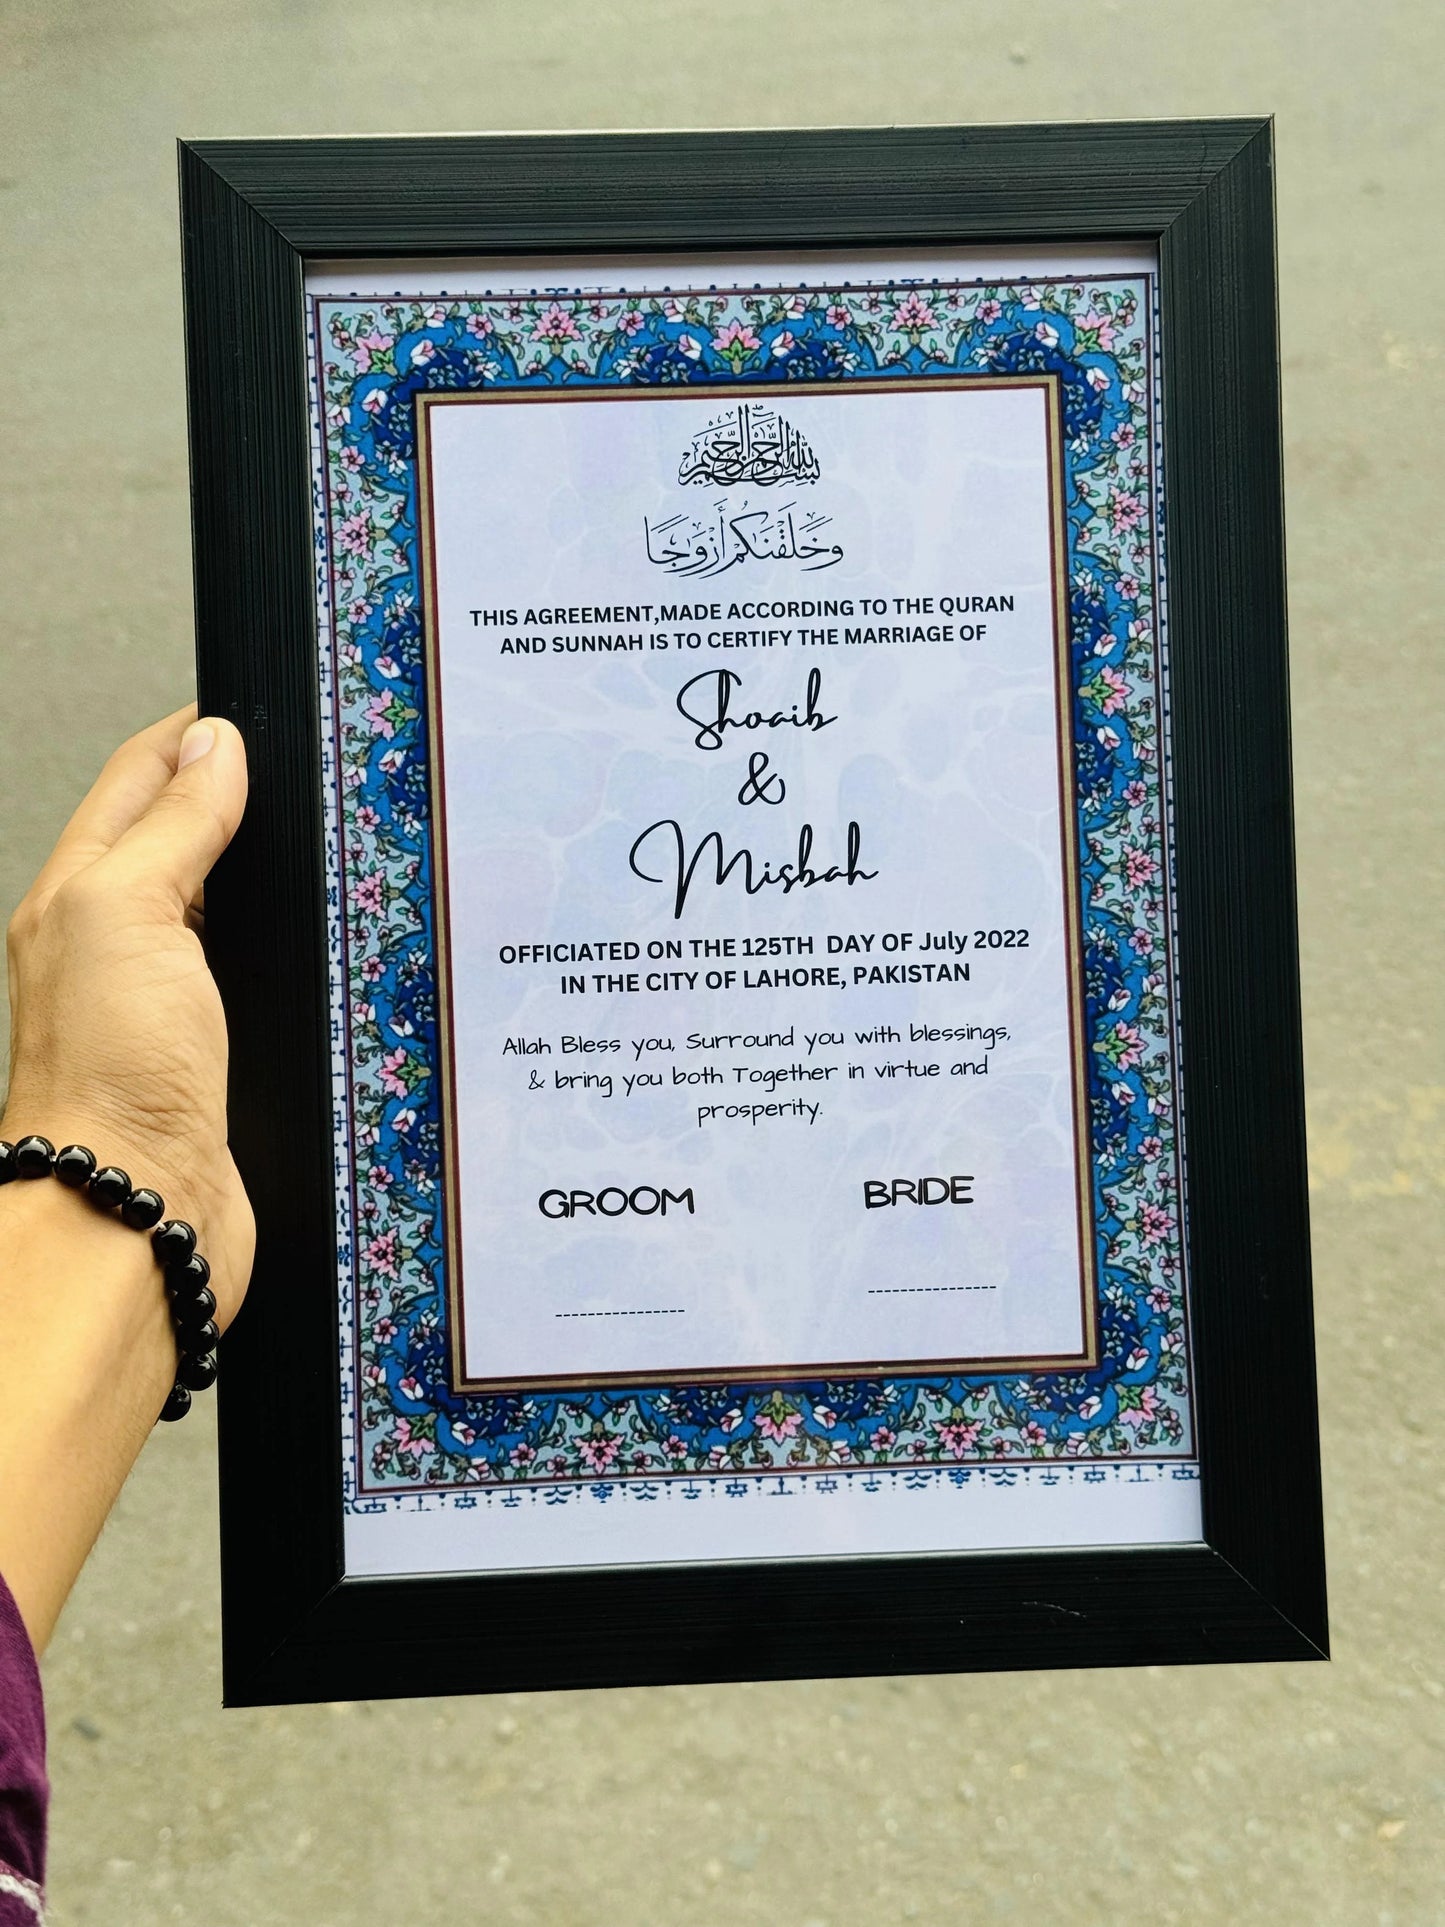 بسم الله الرحمن الرحيم
وَخَلَقْنَٰكُمْ أَزْوَٰجًا
THIS AGREEMENT,MADE ACCORDING TO THE QURAN
AND SUNNAH IS TO CERTIFY THE MARRIAGE OF
Shoaib
&
Misbah
OFFICIATED ON THE 125TH DAY OF July 2022
IN THE CITY OF LAHORE, PAKISTAN
Allah Bless you, Surround you with blessings,
& bring you both Together in virtue and
prosperity.
GROOM BRIDE